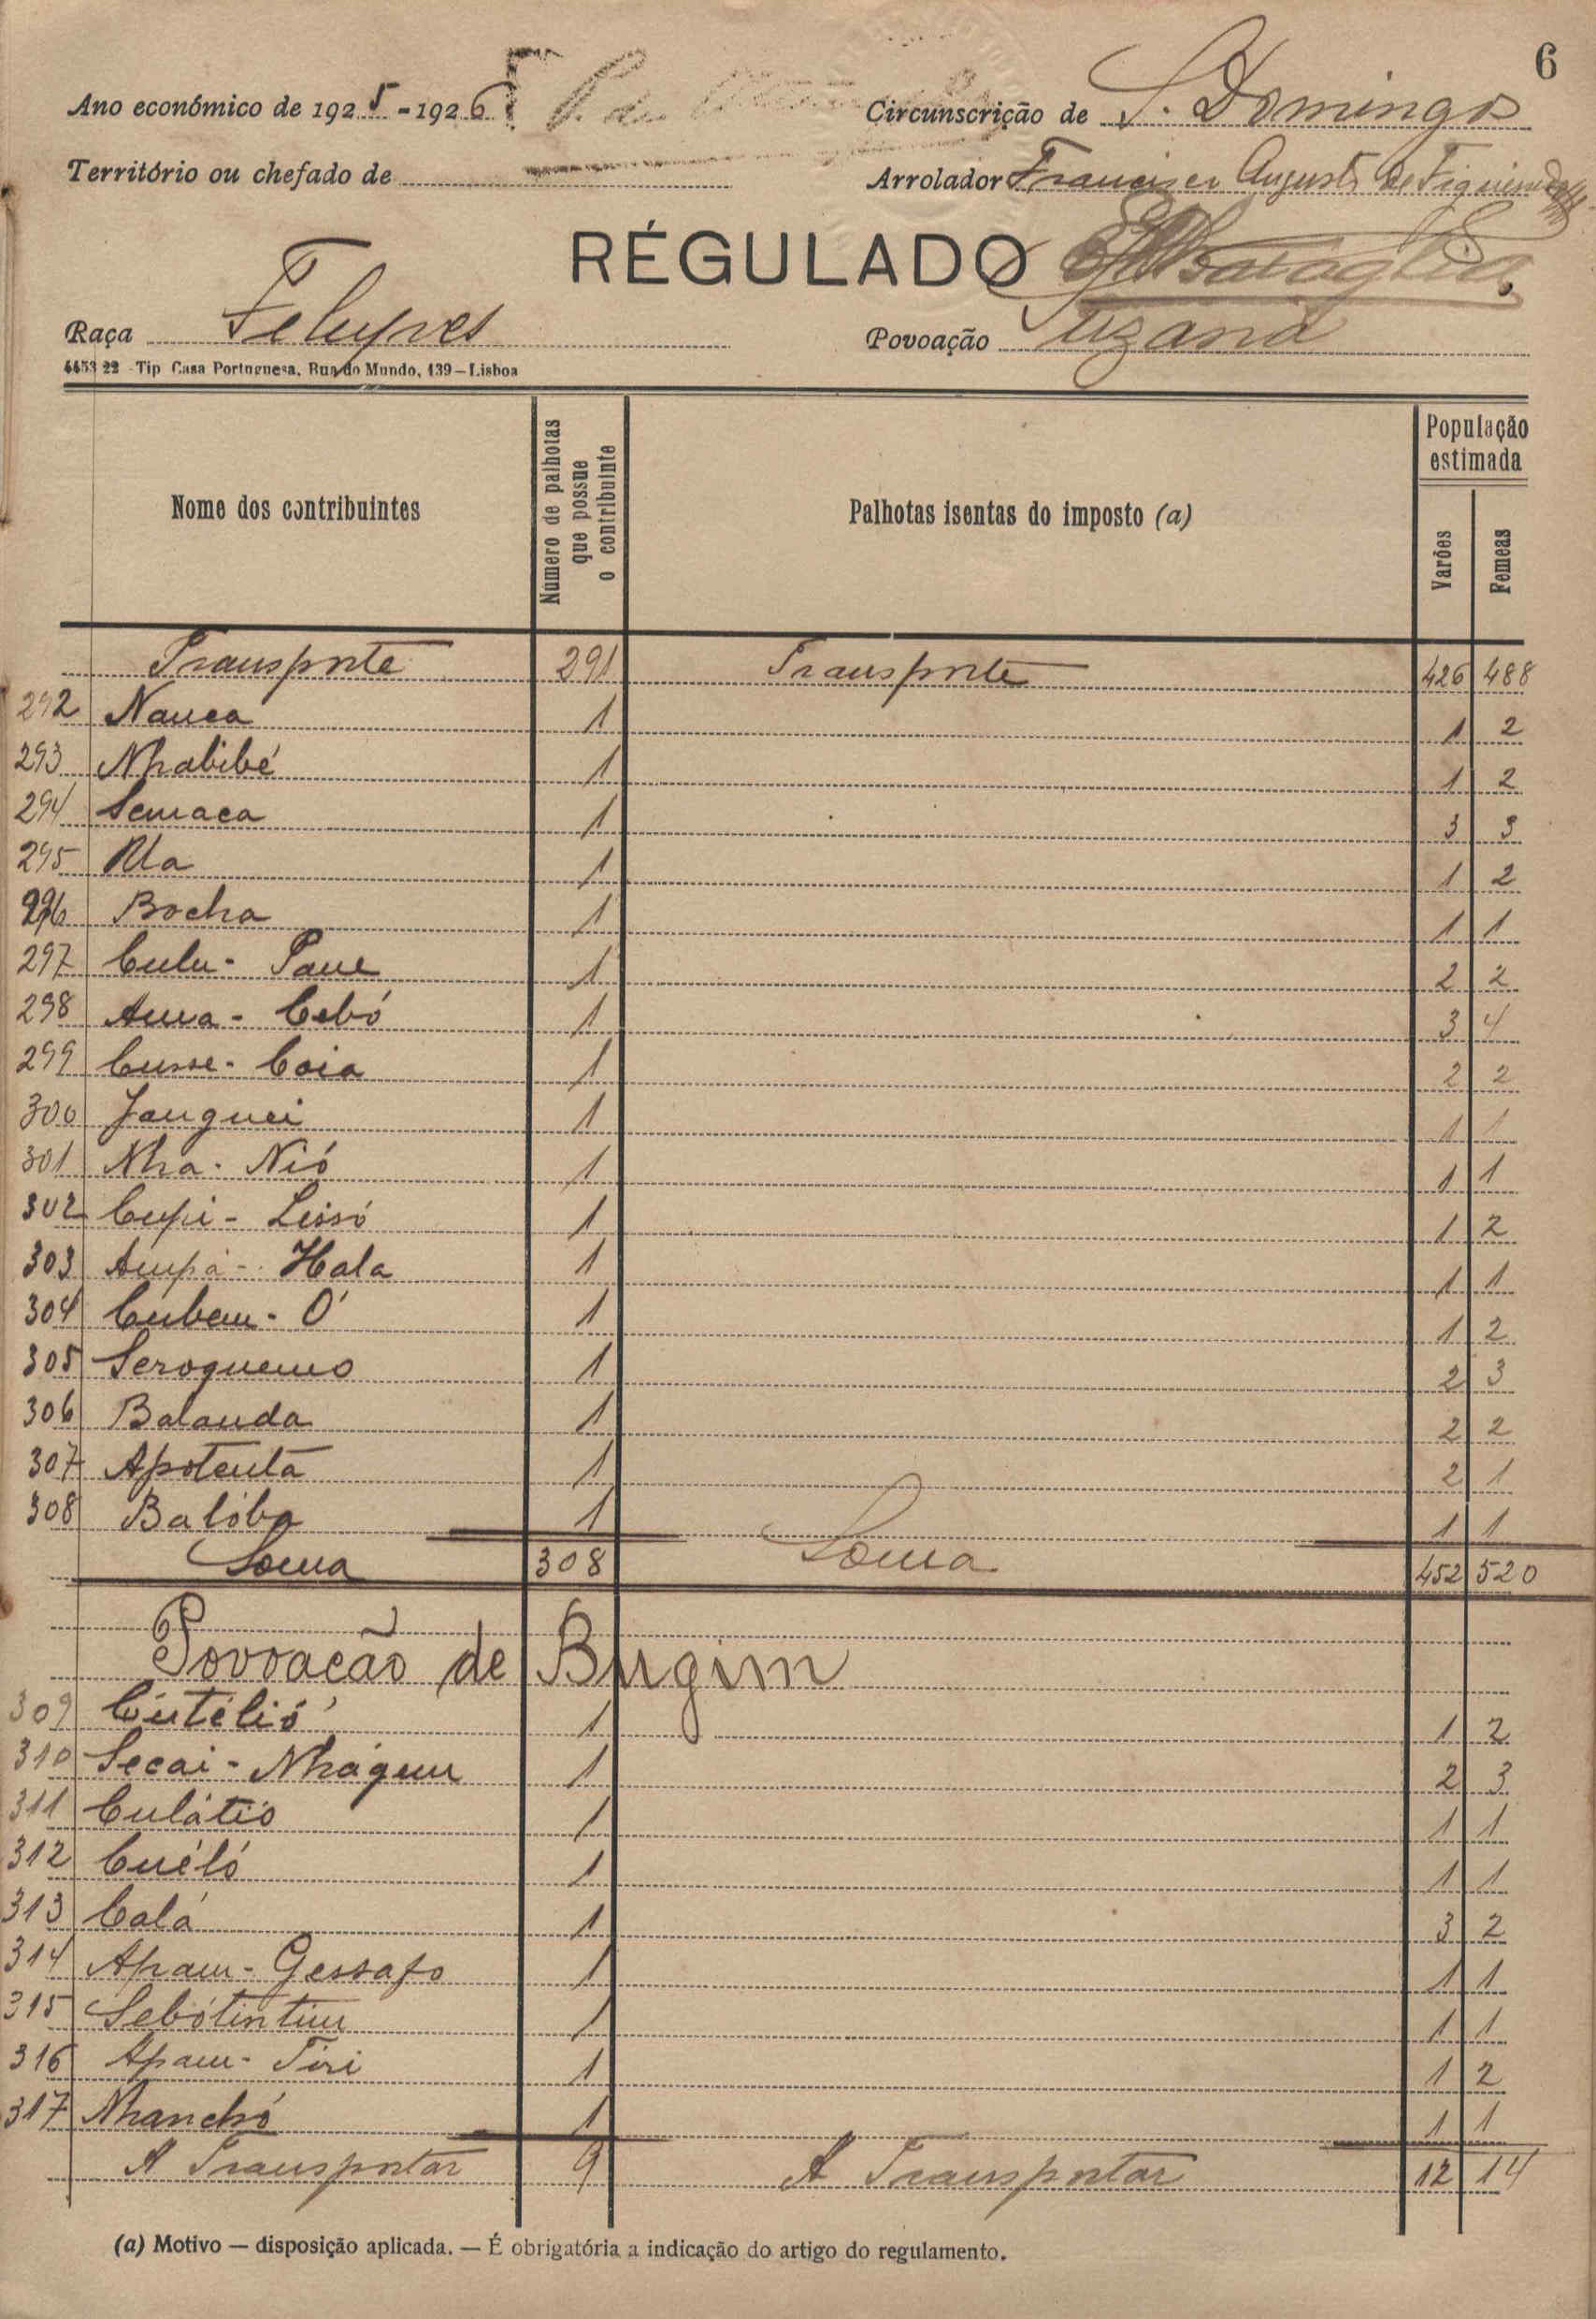 6
Ano económico de 1925-1926 Circunscrição de S. Domingos
Território ou chefado de Arrolador Francisco Augusto de Figueiredo
RÉGULADO
Raça Felupes Povoação
4453 22 - Tip Casa Portuguesa, Rua do Mundo, 139 — Lisboa
Nome dos contribuintes Número de palhotas que possue o contribuinte Palhotas isentas do imposto (a) População estimada Varões Femeas
Transporte 291 Transporte 426 488
292 Nauca 1 1 2
293 Nhabibé 1 1 2
294 Semaca 1 3 3
295 1 1 2
296 Bocha 1 1 1
297 Culu- Paue 1 2 2
298 Ama - Cebó 1 3 4
299 Cusse- Coia 1 2 2
300 Jauguei 1 1 1
301 Nha- Nió 1 1 1
302 Cupi - Lissó 1 1 2
303 Ampá - Hala 1 1 1
304 Cubem- Ó 1 1 2
305 Seroquemo 1 2 3
306 Balanda 1 2 2
307 Apotenta 1 2 1
308 Balóba 1 1 1
Soma 308 Soma 452 520
Povoacão de Bugim
309 Cutélió 1 1 2
310 Secai - Nhágum 1 2 3
311 Culátió 1 1 1
312 Cuéló 1 1 1
313 Calá 1 3 2
314 Apam- Gessafo 1 1 1
315 Sebótintim 1 1 1
316 Apam- Tiri 1 1 2
317 Nhanchó 1 1 1
A Transportar 9 A Transportar 12 14
(a) Motivo — disposição aplicada. — É obrigatória a indicação do artigo do regulamento.